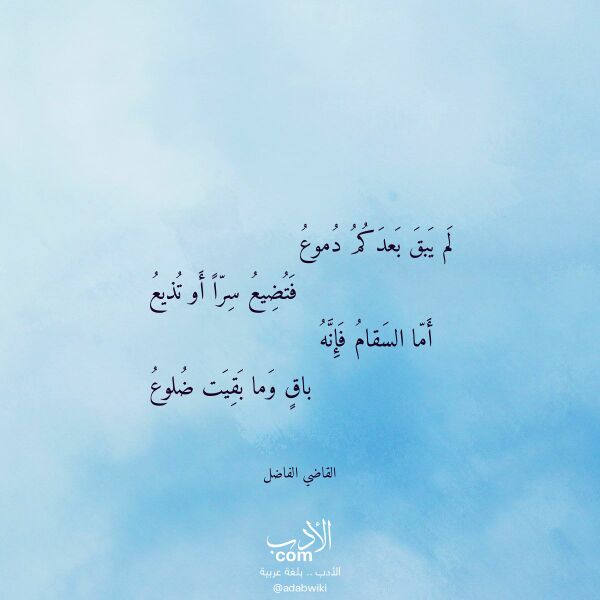 لَم يَبقَ بَعدَكُمُ دُموعُ
فَتُضِيعُ سِرّاً أَو تُذيعُ
أَمّا السَقامُ فَإِنَّهُ
باقٍ وَما بَقِيَت ضُلوعُ
القاضي الفاضل
الأدب
com
الأدب .. بلغة عربية
@adabwiki